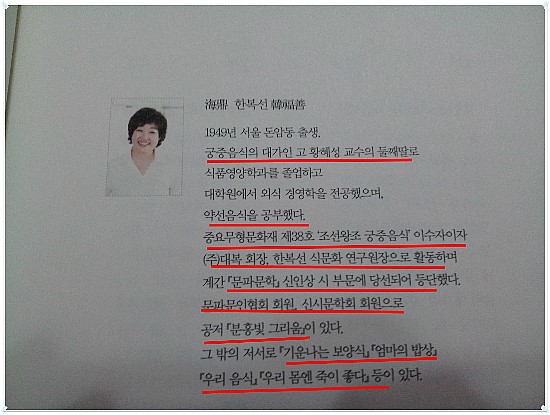 海鼎 한복선 韓福善
1949년 서울 돈암동 출생.
궁중음식의 대가인 고 황혜성 교수의 둘째딸로
식품영양학과를 졸업하고
대학원에서 외식 경영학을 전공했으며,
약선음식을 공부했다.
중요무형문화재 제38호 '조선왕조 궁중음식' 이수자이자
(주)대복 회장, 한복선 식문화 연구원장으로 활동하며
계간 「문파문학」 신인상 시 부문에 당선되어 등단했다.
문파문인협회 회원, 신시문학회 회원으로
공저 「분홍빛 그리움」이 있다.
그 밖의 저서로 「기운나는 보양식」 「엄마의 밥상」
「우리 음식」 「우리 몸엔 죽이 좋다」 등이 있다.